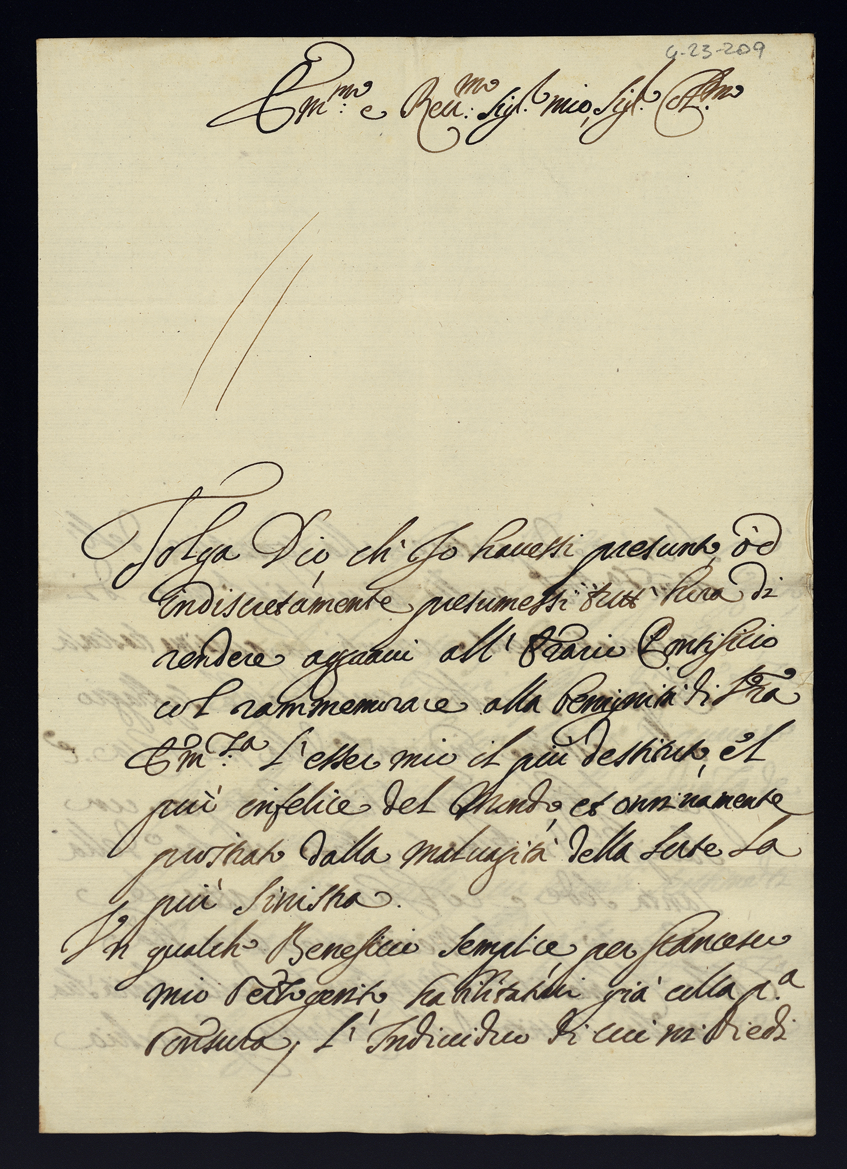 G-23-209
Em.mo e Reu.mo Sig.r mio, Sig.r Col.mo
Tolga Dio ch' Jo hauessi presunto, ò d
indiscretamente presumessi tutt' hora di
rendere aggraui all' Erario Pontificio
col rammemorare alla benignità di Vra
Em.za L'esser mio il più destituto, e'l
più infelice del Mondo, et onninamente
prostrato dalla maluagità della sorte La
più sinistra.
Vn qualch' Beneficio semplice per Francesco
mio genito, habilitato già colla p.a
Tonsura, L' Indiuiduo di cui ni diedi